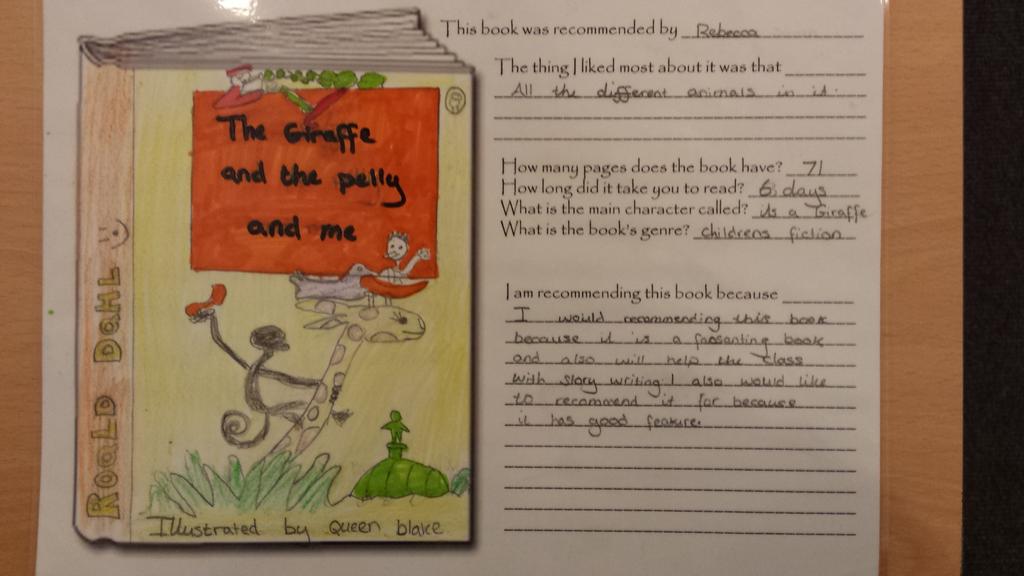 The Giraffe
and the pelly
and me
ROALD DAHL
Illustrated by Queen blake
This book was recommended by Rebecca
The thing I liked most about it was that
All the different animals in it.
How many pages does the book have? 71
How long did it take you to read? 6 days
What is the main character called? its a Giraffe
What is the book's genre? Childrens fiction
I am recommending this book because
I would recommending this book
because it is a fassanting book
and also will help the class
with story writing I also would like
to recommend it for because
it has good feature.